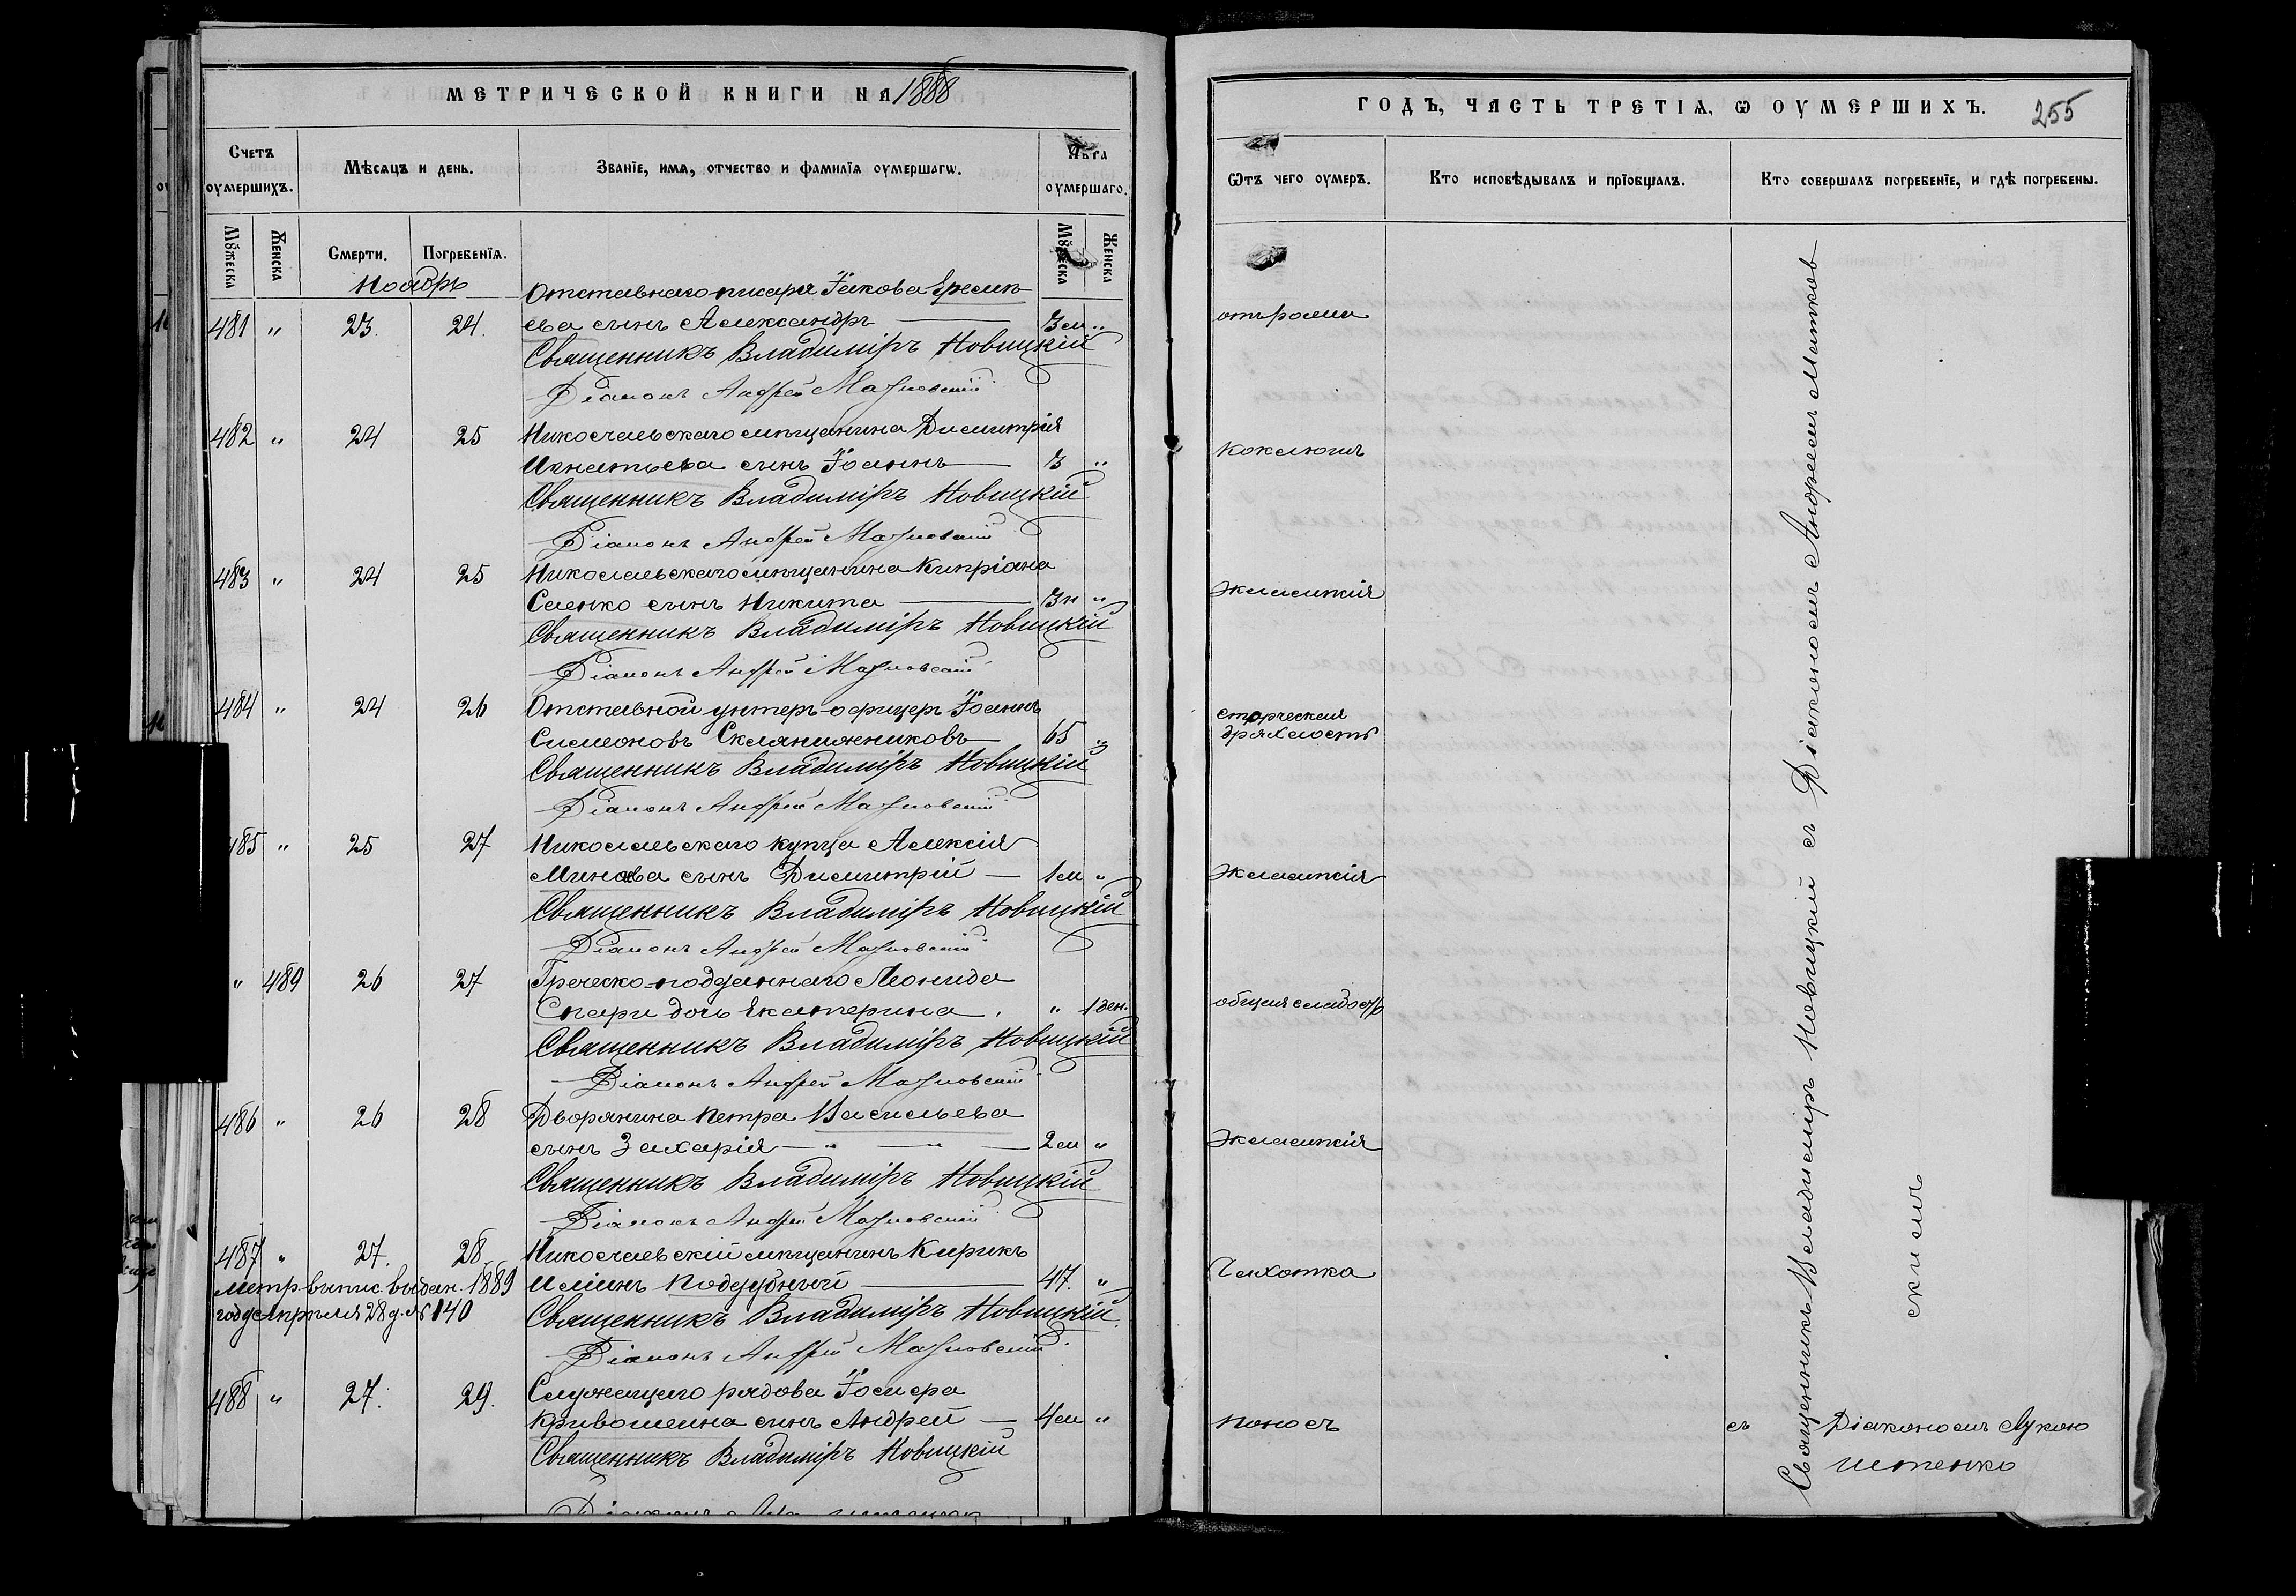 МЕТРИЧЕСКОЙ КНИГИ НА 1888
ГОДЪ, ЧАСТЬ ТРЕТІѦ, Ѡ ОУМЕРШИХЪ. 255
Счетъ оумершихъ.
Мѣсѧцъ и день.
Званїе, имѧ, отчество и фамилїѧ оумершагѡ.
Лѣта оумершаго.
Ѿтъ чего оумеръ.
Кто исповѣдывалъ и прїобщалъ.
Кто совершалъ погребенїе, и гдѣ погребены.
Мꙋжеска
Женска
Смерти.
Погребенїѧ.
Мꙋжеска
Женска
Ноябрь
Отставнаго писаря Іакова
481 " 23. 24. ева сынъ Александръ 3 м "
Священникъ Владиміръ Новицкій
Діаконъ Андрей
482 " 24 25 Николаевскаго мѣщанина Димитрія
Игнатьева сынъ Іоаннъ 3 " коклюшъ
Священникъ Владиміръ Новицкій
Діаконъ Андрей
483 " 24 25 Николаевскаго мѣщанина Кипріана
Саенко сынъ Никита 3 н " эклампсія
Священникъ Владиміръ Новицкій
Діаконъ Андрей
484 " 24 26 Отставной унтеръ-офицеръ Іоаннъ
Симеоновъ 65 " старческая
дряхлость
Священникъ Владиміръ Новицкій
Діаконъ Андрей
485 " 25 27 Николаевскаго купца Алексія
Минаева сынъ Димитрій 1 м " эклампсія
Священникъ Владиміръ Новицкій
Діаконъ Андрей
" 489 26 27 Греческо-подданнаго Леонида
Спари дочь Екатерина " 1 ден. общая слабость
Священникъ Владиміръ Новицкій
Діаконъ Андрей
486 " 26 28 Дворянина Петра Васильева
сынъ Захарія 2 м " эклампсія
Священникъ Владиміръ Новицкій
Діаконъ Андрей
487 " 27. 28 Николаевскій мѣщанинъ Кирикъ
Метр. выпис. выдан. 1889 Иліинъ Поддубный 47. " Чахотка
года Апрѣля 28 д. № 140 Священникъ Владиміръ Новицкій
Діаконъ Андрей
488 " 27. 29. Служащаго рядова Іосифа
Кривошеина сынъ Андрей 4 м " поносъ
Священникъ Владиміръ Новицкій
Священникъ Владиміръ Новицкій съ Діакономъ Андреемъ
скимъ
съ Діакономъ Лукою